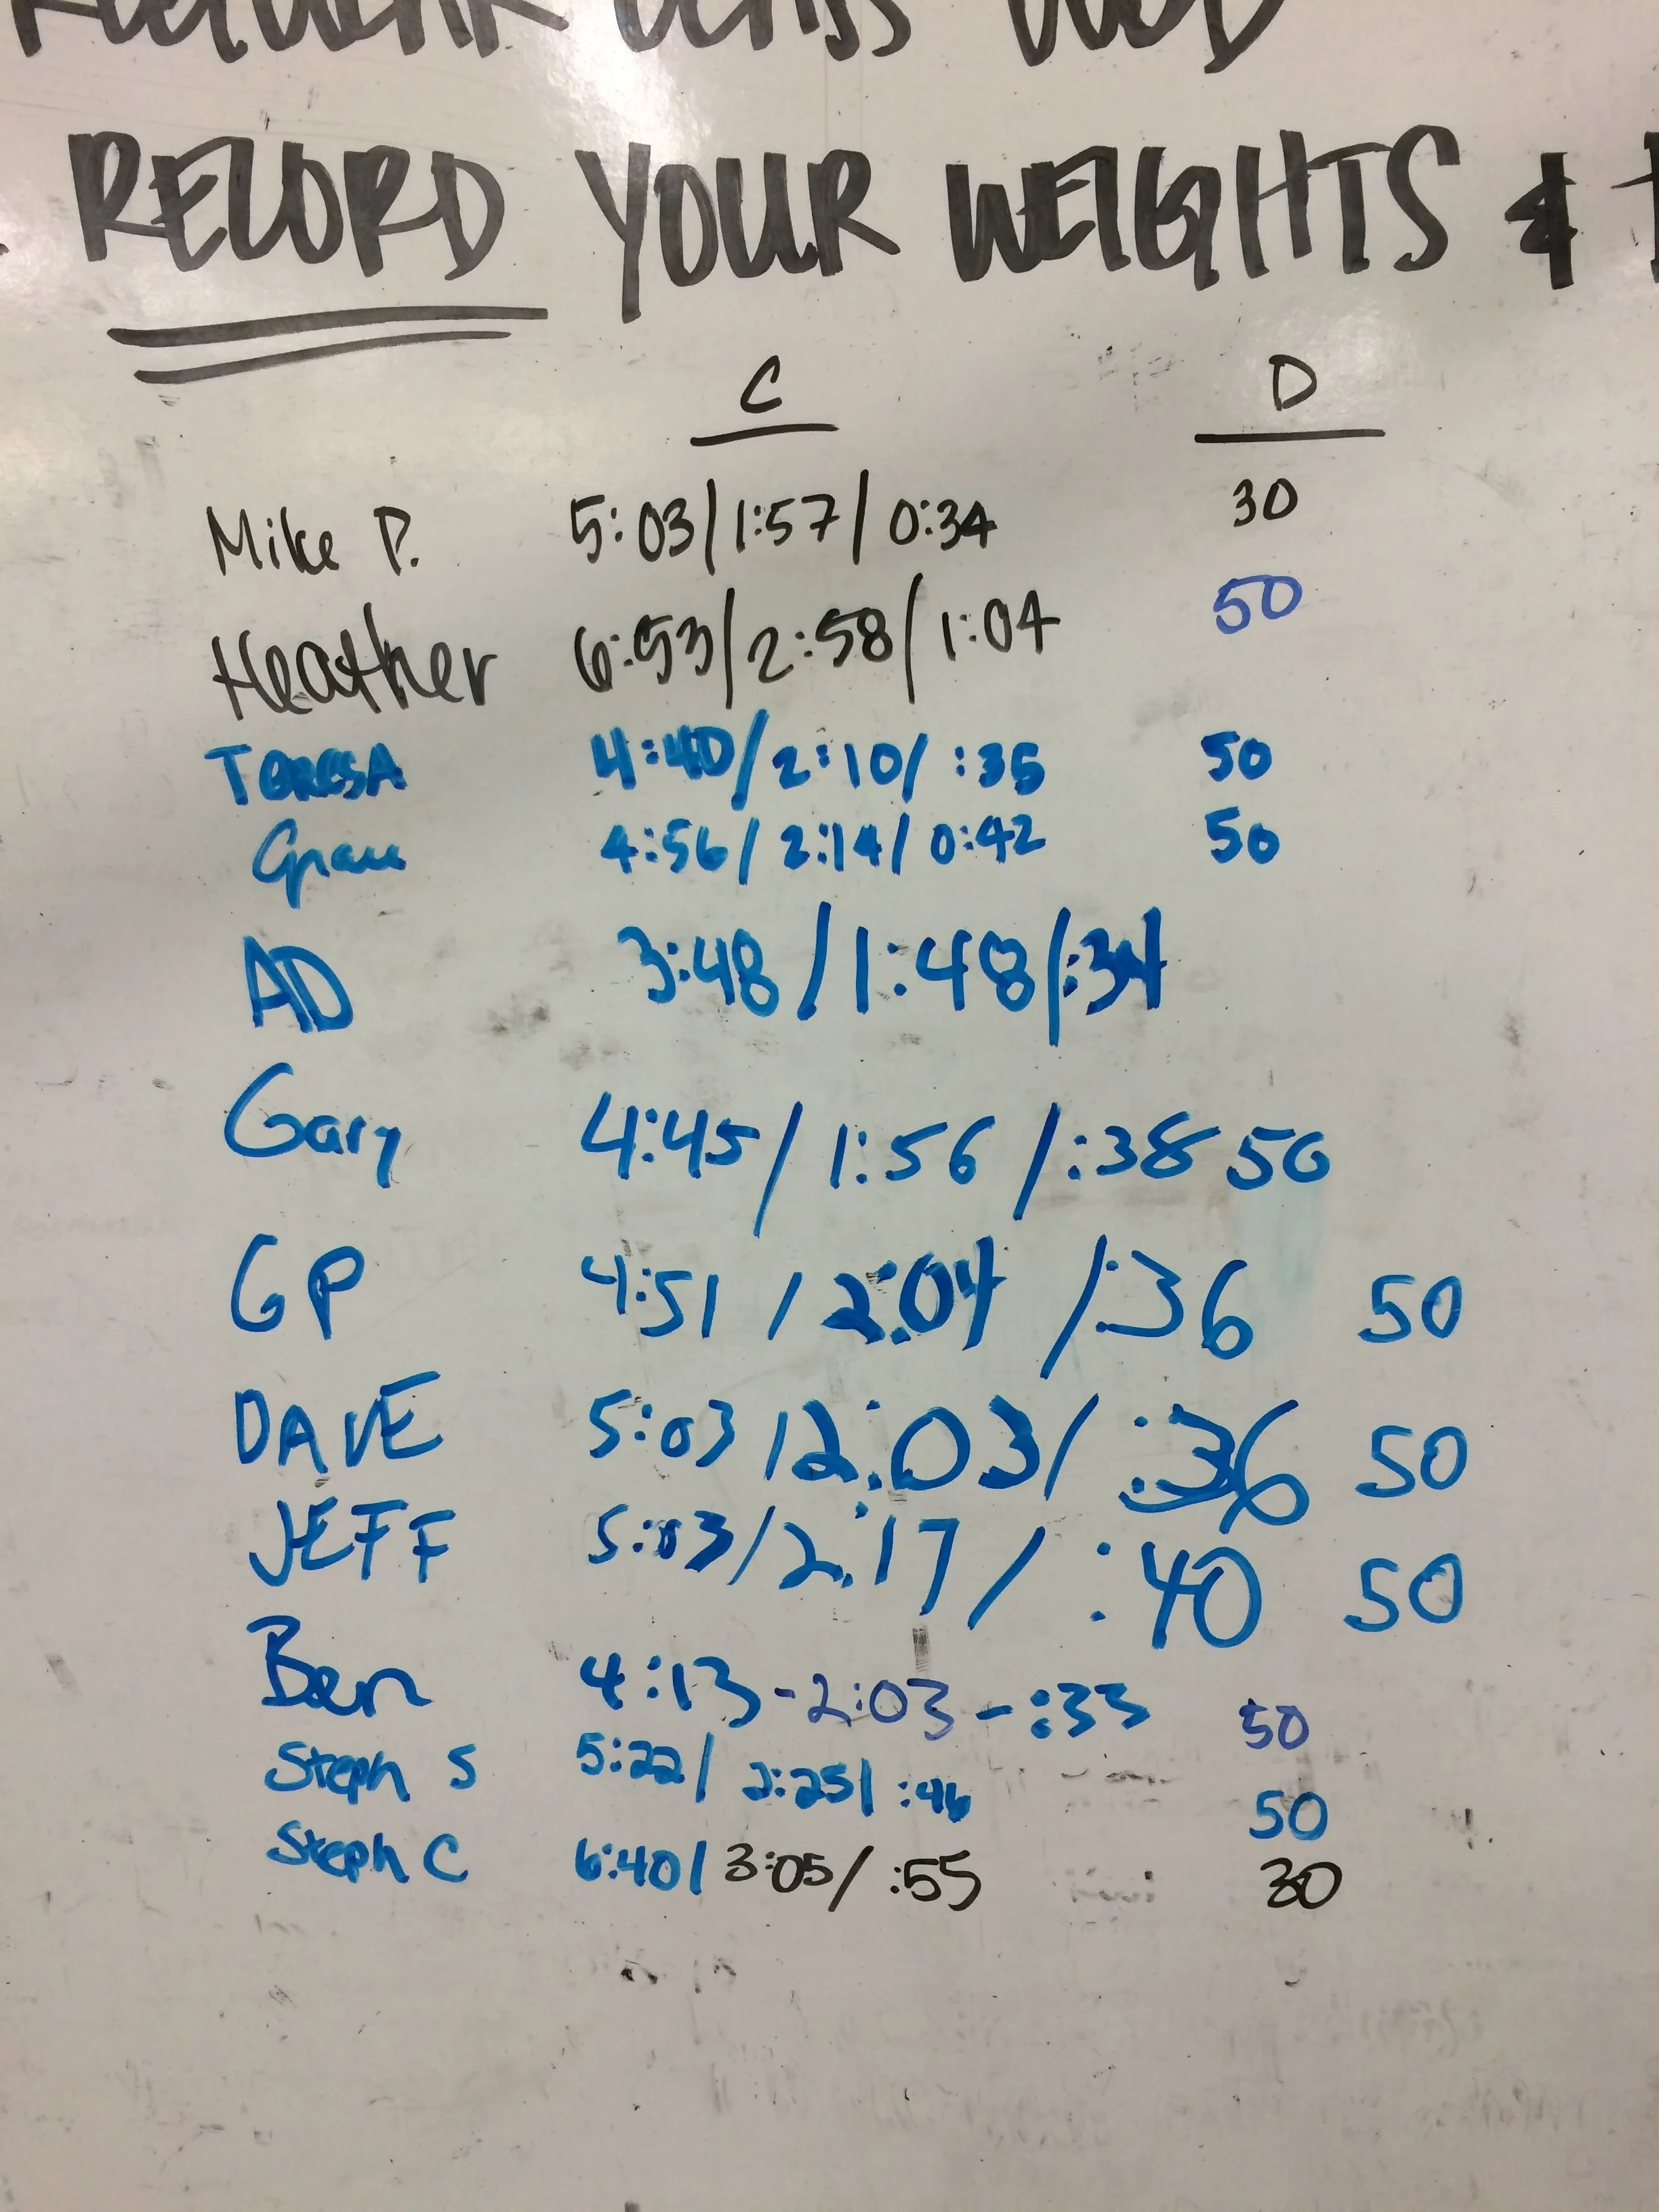 WOD
RECORD YOUR WEIGHTS &
C D
Mike P. 5:03/1:57/0:34 30
Heather 6:53/2:58/1:04 50
TERESA 4:40/2:10/:35 50
4:56/2:14/0:42 50
AD 3:48/1:48/:34
Gary 4:45/1:56/:38 50
GP 4:51/2:04/:36 50
DAVE 5:03/2:03/:36 50
JEFF 5:03/2:17/:40 50
Ben 4:13-2:03-:33 50
Steph S 5:22/2:25/:46 50
Steph C 6:40/3:05/:55 30